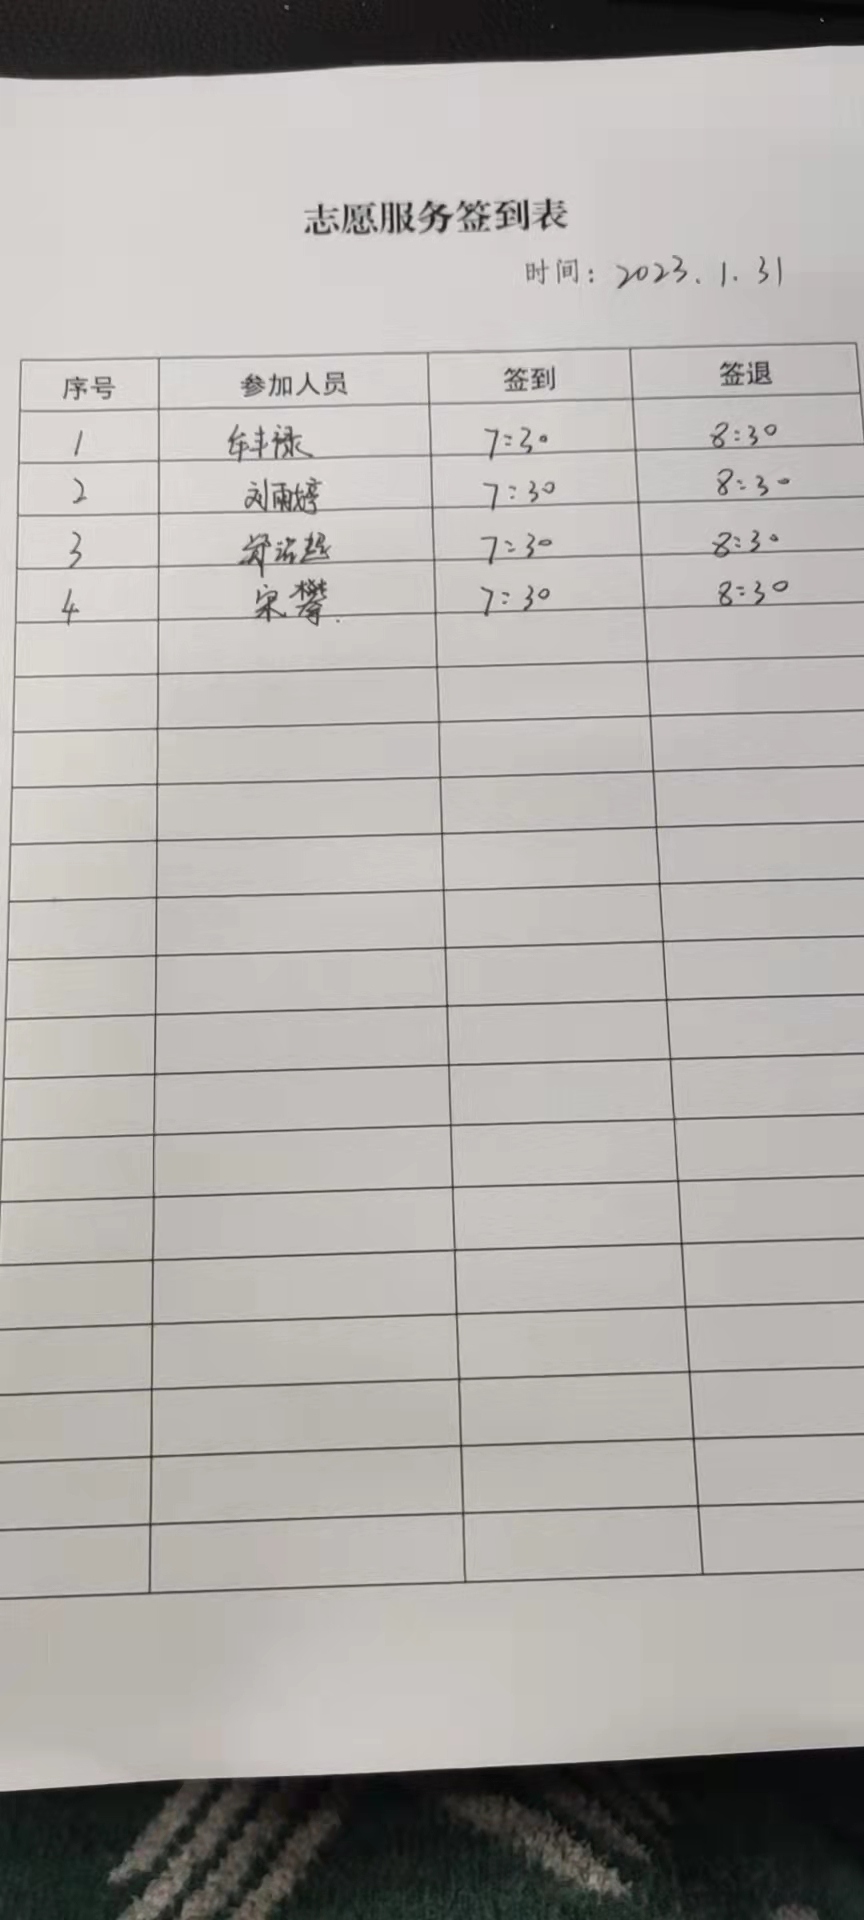 志愿服务签到表
时间：2023.1.31
序号 参加人员 签到 签退
1 牟丰禄 7:30 8:30
2 刘雨婷 7:30 8:30
3 7:30 8:30
4 宋攀. 7:30 8:30